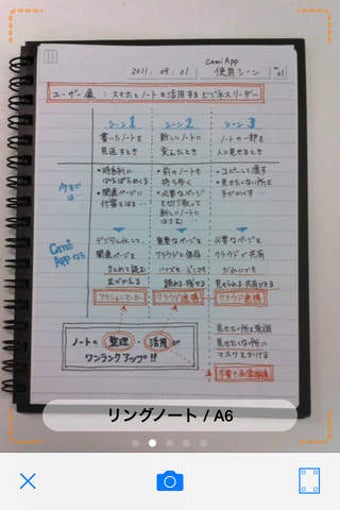 CamiApp
2011.09.01 使用シーン No. 01
ユーザー像:スマホとノートを活用するビジネスリーダー
シーン1 シーン2 シーン3
書いたノートを 新しいノートに ノートの一部を
見返すとき 変えたとき 人に見せるとき
今までは…
・時系列に ・前のノートも ・コピーして渡す
ぱらぱらめくる 持ち歩く ・見せたくない所は
・関連ページに ・必要なページ
付箋をはる… を切り取って
新しいノートに
はさむ…
CamiAppなら
デジタル化して、 重要なページを 必要なページを
関連ページを クラウドに保存 クラウドで共有
まとめて読む いつでも・どこでも だれにでも
並べかえる 読める・残せる 見せられる・共有できる
アクションマーカー クラウド連携 クラウド連携
ノートの 整理・活用が
ワンランクアップ!!
見せたい所を強調
見せたくない所に
マスクをかける
リングノート / A6